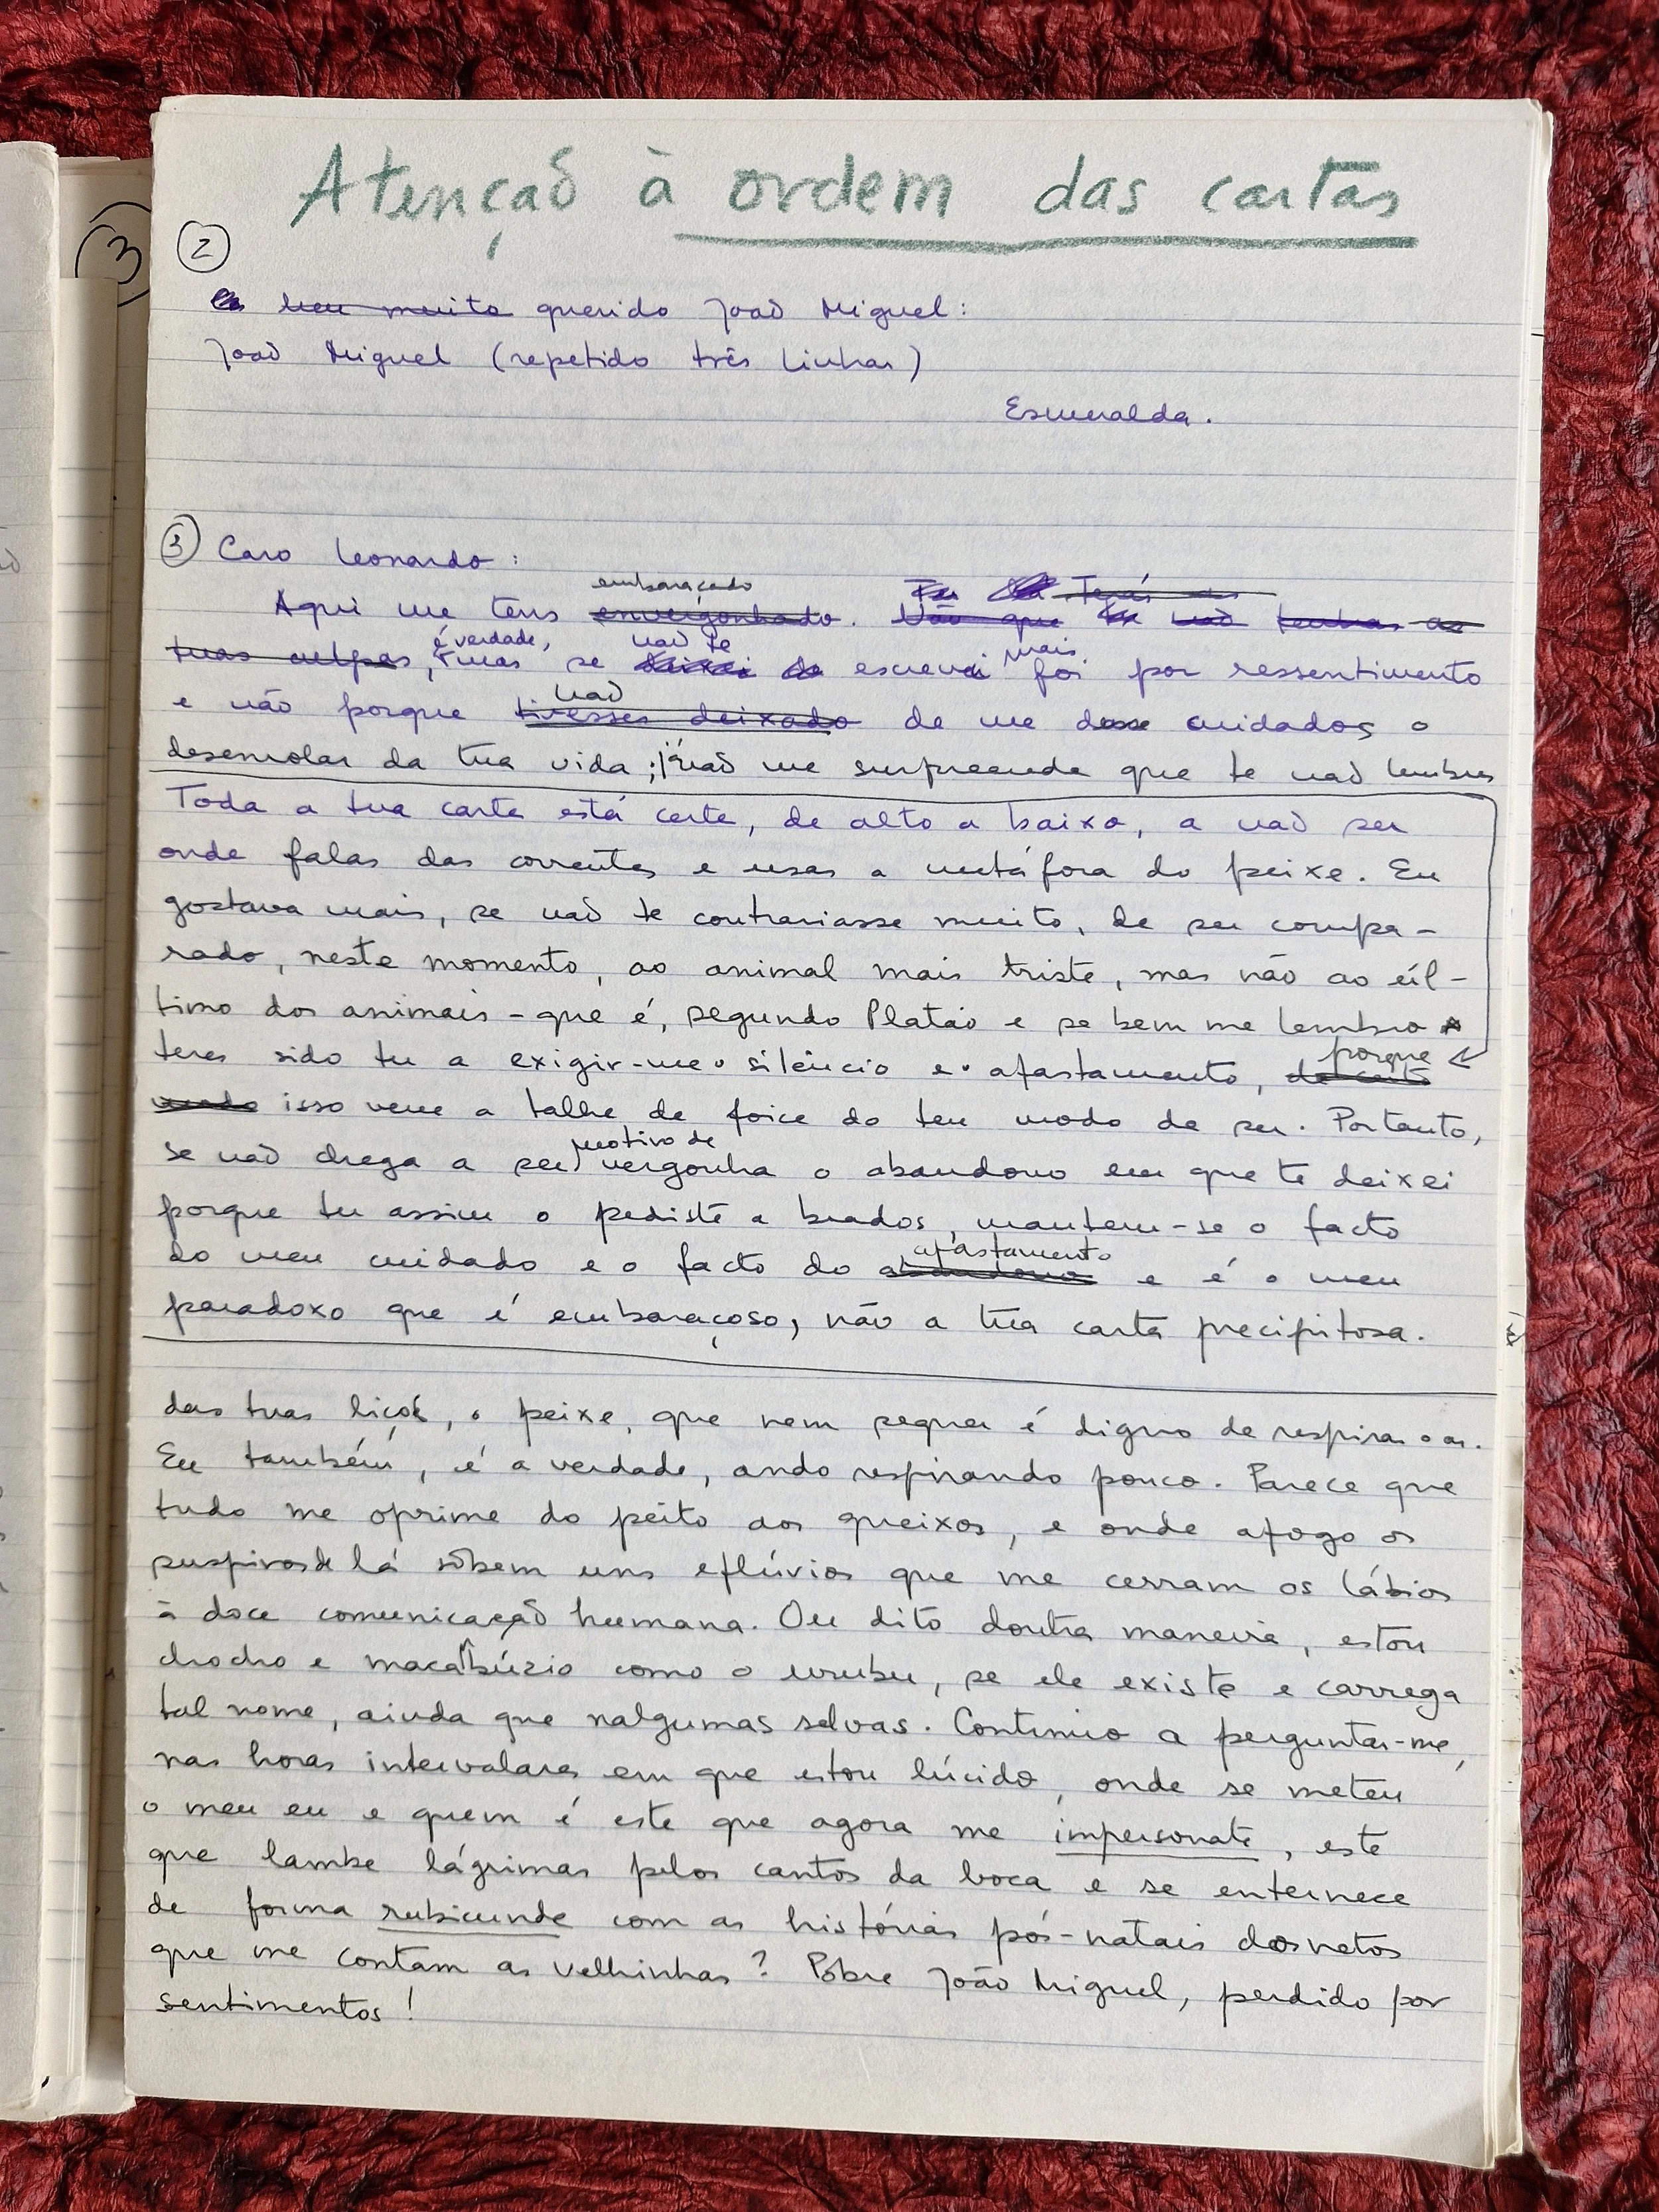 Atenção à ordem das cartas
3
2
meu muito querido João Miguel:
João Miguel (repetido três linhas)
Esmeralda.
3 Caro Leonardo:
embaraçado Terás as
Aqui me tens envergonhado. Não que não tenhas as
é verdade, não te mais
tuas culpas, mas se deixei de escrevi foi por ressentimento
não
e não porque tivesses deixado de me dar cuidados o
desenrolar da tua vida; já não me surpreende que te não lembres
Toda a tua carta está certa, de alto a baixo, a não ser
onde falas das correntes e usas a metáfora do peixe. Eu
gostava mais, se não te contrariasse muito, de ser compa-
rado, neste momento, ao animal mais triste, mas não ao úl-
timo dos animais - que é, segundo Platão e se bem me lembro
porque
teres sido tu a exigir-me o silêncio e o afastamento,
isso vem a talhe de foice do teu modo de ser. Portanto,
motivo de
se não chega a ser vergonha o abandono em que te deixei
porque tu assim o pediste a brados, mantem-se o facto
afastamento
do meu cuidado e o facto do abandono e é o meu
paradoxo que é embaraçoso, não a tua carta precipitosa.
das tuas lições, o peixe, que nem sequer é digno de respirar o ar.
Eu também, é a verdade, ando respirando pouco. Parece que
tudo me oprime do peito aos queixos, e onde afogo os
suspiros de lá sobem uns eflúvios que me cerram os lábios
à doce comunicação humana. Ou dito doutra maneira, estou
chocho e macambúzio como o urubu, se ele existe e carrega
tal nome, ainda que nalgumas selvas. Continuo a perguntar-me,
nas horas intervalares em que estou lúcido, onde se meteu
o meu eu e quem é este que agora me impersonate, este
que lambe lágrimas pelos cantos da boca e se enternece
de forma rubicunde com as histórias pós-natais dos netos
que me contam as velhinhas? Pobre João Miguel, perdido por
sentimentos!